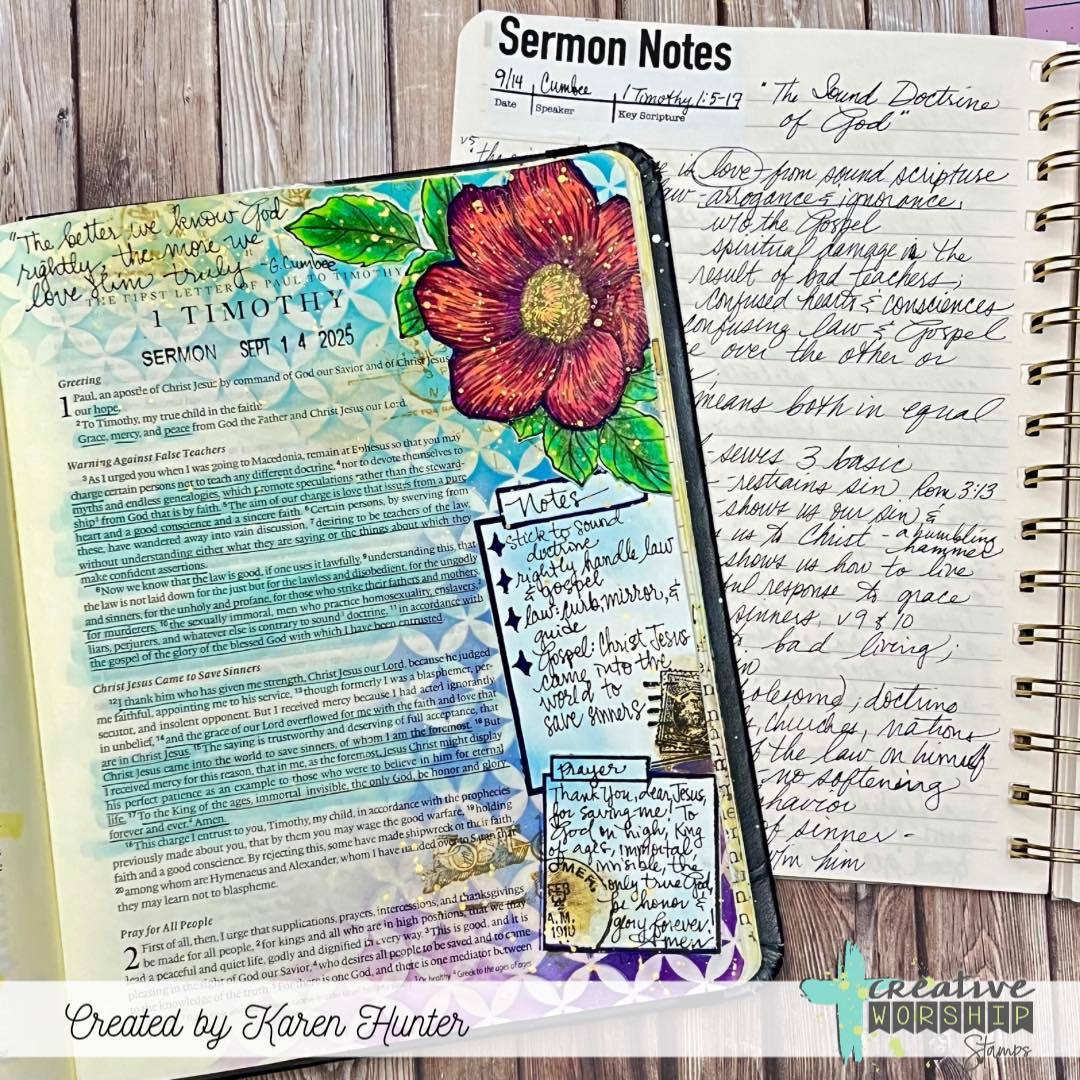 Sermon Notes
9/14 Cumbee 1 Timothy 1:5-17
Date Speaker Key Scripture
"The Sound Doctrine
of God"
v5
is love from sound scripture
arrogance & ignorance,
w/o the Gospel
spiritual damage is the
result of bad teachers;
confused hearts & consciences
confusing law & Gospel
over the other or
means both in equal
serves 3 basic
- restrains sin Rom 3:13
shows us our sin &
us to Christ - a humbling
hammer
shows us how to live
response to grace
sinners, v9 & 10
bad living;
doctrine
, churches, nations
the law on himself
- no softening
sinner -
him
"The better we know God
rightly, the more we
love Him truly" - G. Cumbee
THE FIRST LETTER OF PAUL TO TIMOTHY
1 TIMOTHY
SERMON SEPT 14 2025
Greeting
1 Paul, an apostle of Christ Jesus by command of God our Savior and of Christ Jesus
our hope,
2 To Timothy, my true child in the faith:
Grace, mercy, and peace from God the Father and Christ Jesus our Lord.
Warning Against False Teachers
3 As I urged you when I was going to Macedonia, remain at Ephesus so that you may
charge certain persons not to teach any different doctrine, 4 nor to devote themselves to
myths and endless genealogies, which promote speculations rather than the steward-
ship from God that is by faith. 5 The aim of our charge is love that issues from a pure
heart and a good conscience and a sincere faith. 6 Certain persons, by swerving from
these, have wandered away into vain discussion, 7 desiring to be teachers of the law,
without understanding either what they are saying or the things about which they
make confident assertions.
8 Now we know that the law is good, if one uses it lawfully, 9 understanding this, that
the law is not laid down for the just but for the lawless and disobedient, for the ungodly
and sinners, for the unholy and profane, for those who strike their fathers and mothers,
for murderers, 10 the sexually immoral, men who practice homosexuality, enslavers,
liars, perjurers, and whatever else is contrary to sound doctrine, 11 in accordance with
the gospel of the glory of the blessed God with which I have been entrusted.
Christ Jesus Came to Save Sinners
12 I thank him who has given me strength, Christ Jesus our Lord, because he judged
me faithful, appointing me to his service, 13 though formerly I was a blasphemer, per-
secutor, and insolent opponent. But I received mercy because I had acted ignorantly
in unbelief, 14 and the grace of our Lord overflowed for me with the faith and love that
are in Christ Jesus. 15 The saying is trustworthy and deserving of full acceptance, that
Christ Jesus came into the world to save sinners, of whom I am the foremost. 16 But
I received mercy for this reason, that in me, as the foremost, Jesus Christ might display
his perfect patience as an example to those who were to believe in him for eternal
life. 17 To the King of the ages, immortal, invisible, the only God, be honor and glory
forever and ever. Amen.
18 This charge I entrust to you, Timothy, my child, in accordance with the prophecies
previously made about you, that by them you may wage the good warfare, 19 holding
faith and a good conscience. By rejecting this, some have made shipwreck of their faith,
20 among whom are Hymenaeus and Alexander, whom I have handed over to Satan that
they may learn not to blaspheme.
Pray for All People
2 First of all, then, I urge that supplications, prayers, intercessions, and thanksgivings
be made for all people, 2 for kings and all who are in high positions, that we may
lead a peaceful and quiet life, godly and dignified in every way. 3 This is good, and it is
pleasing in the sight of God our Savior, 4 who desires all people to be saved and to come
the knowledge of the truth. 5 For there is one God, and there is one mediator between
Greek to the ages of ages
Notes
stick to sound
doctrine
rightly handle law
& gospel
law: curb, mirror, &
guide
Gospel: Christ Jesus
came into the
world to
save sinners
Prayer
Thank You, dear Jesus,
for saving me! To
God on high, King
of ages, immortal,
invisible, the
only true God,
be honor &
glory forever!
Amen
OMER,
FEB
A.M.
1910
Created by Karen Hunter
creative
WORSHIP
Stamps